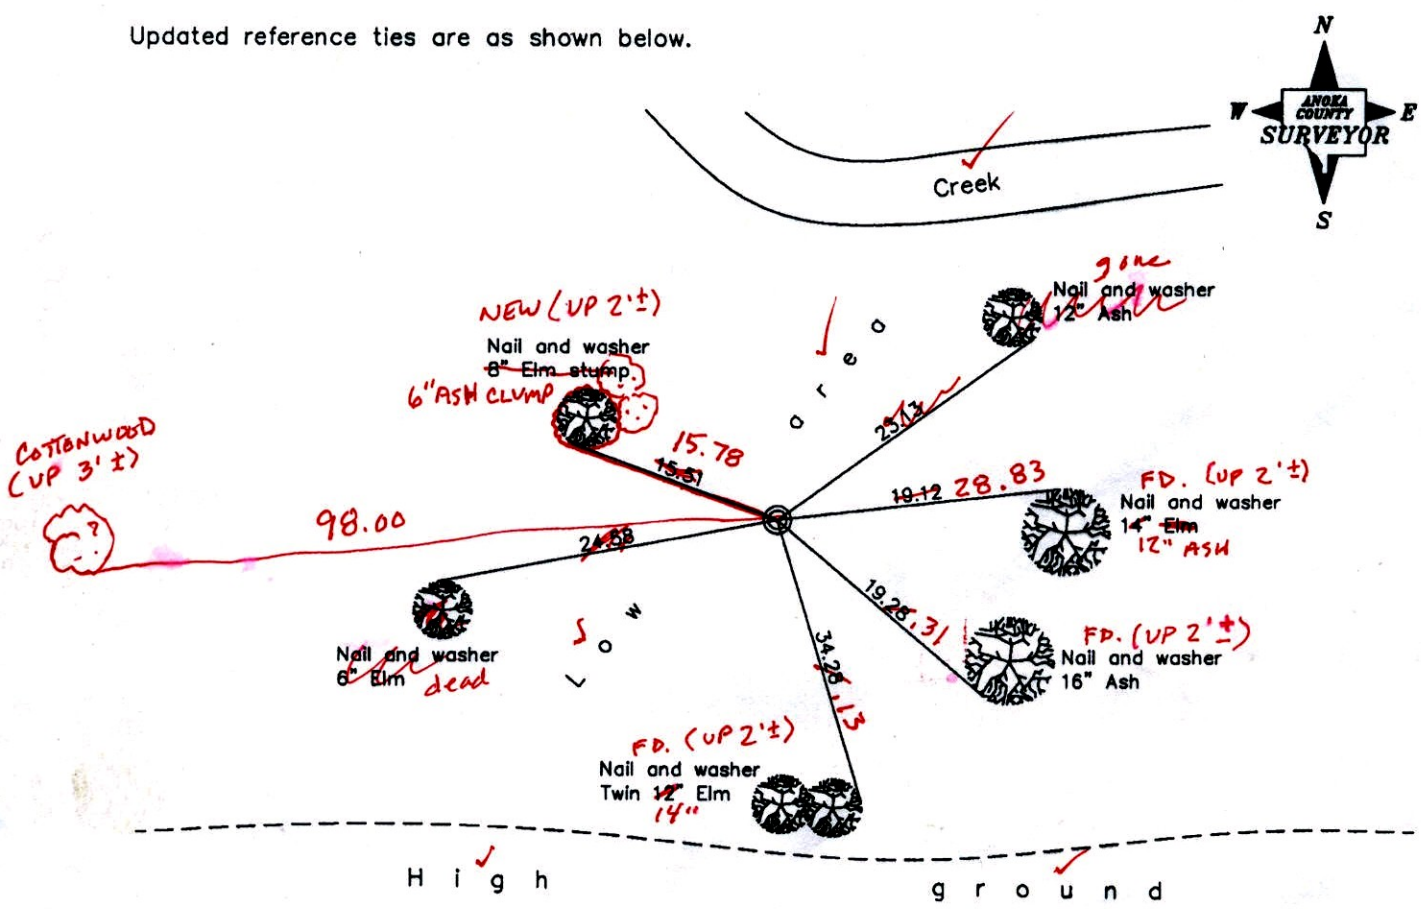 Updated reference ties are as shown below.
N
W
ANOKA
COUNTY
SURVEYOR
E
S
Creek
gone
Nail and washer
12" Ash
NEW (UP 2'±)
Nail and washer
8" Elm stump
6" ASH CLUMP
area
15.78
15.51
COTTONWOOD
(UP 3' ±)
?
98.00
24.58
19.12 28.83
FD. (UP 2'±)
Nail and washer
14" Elm
12" ASH
19.28 .31
FD. (UP 2'±)
Nail and washer
16" Ash
34.28 .13
Low
Nail and washer
6" Elm dead
FD. (UP 2'±)
Nail and washer
Twin 12" Elm
14"
High ground